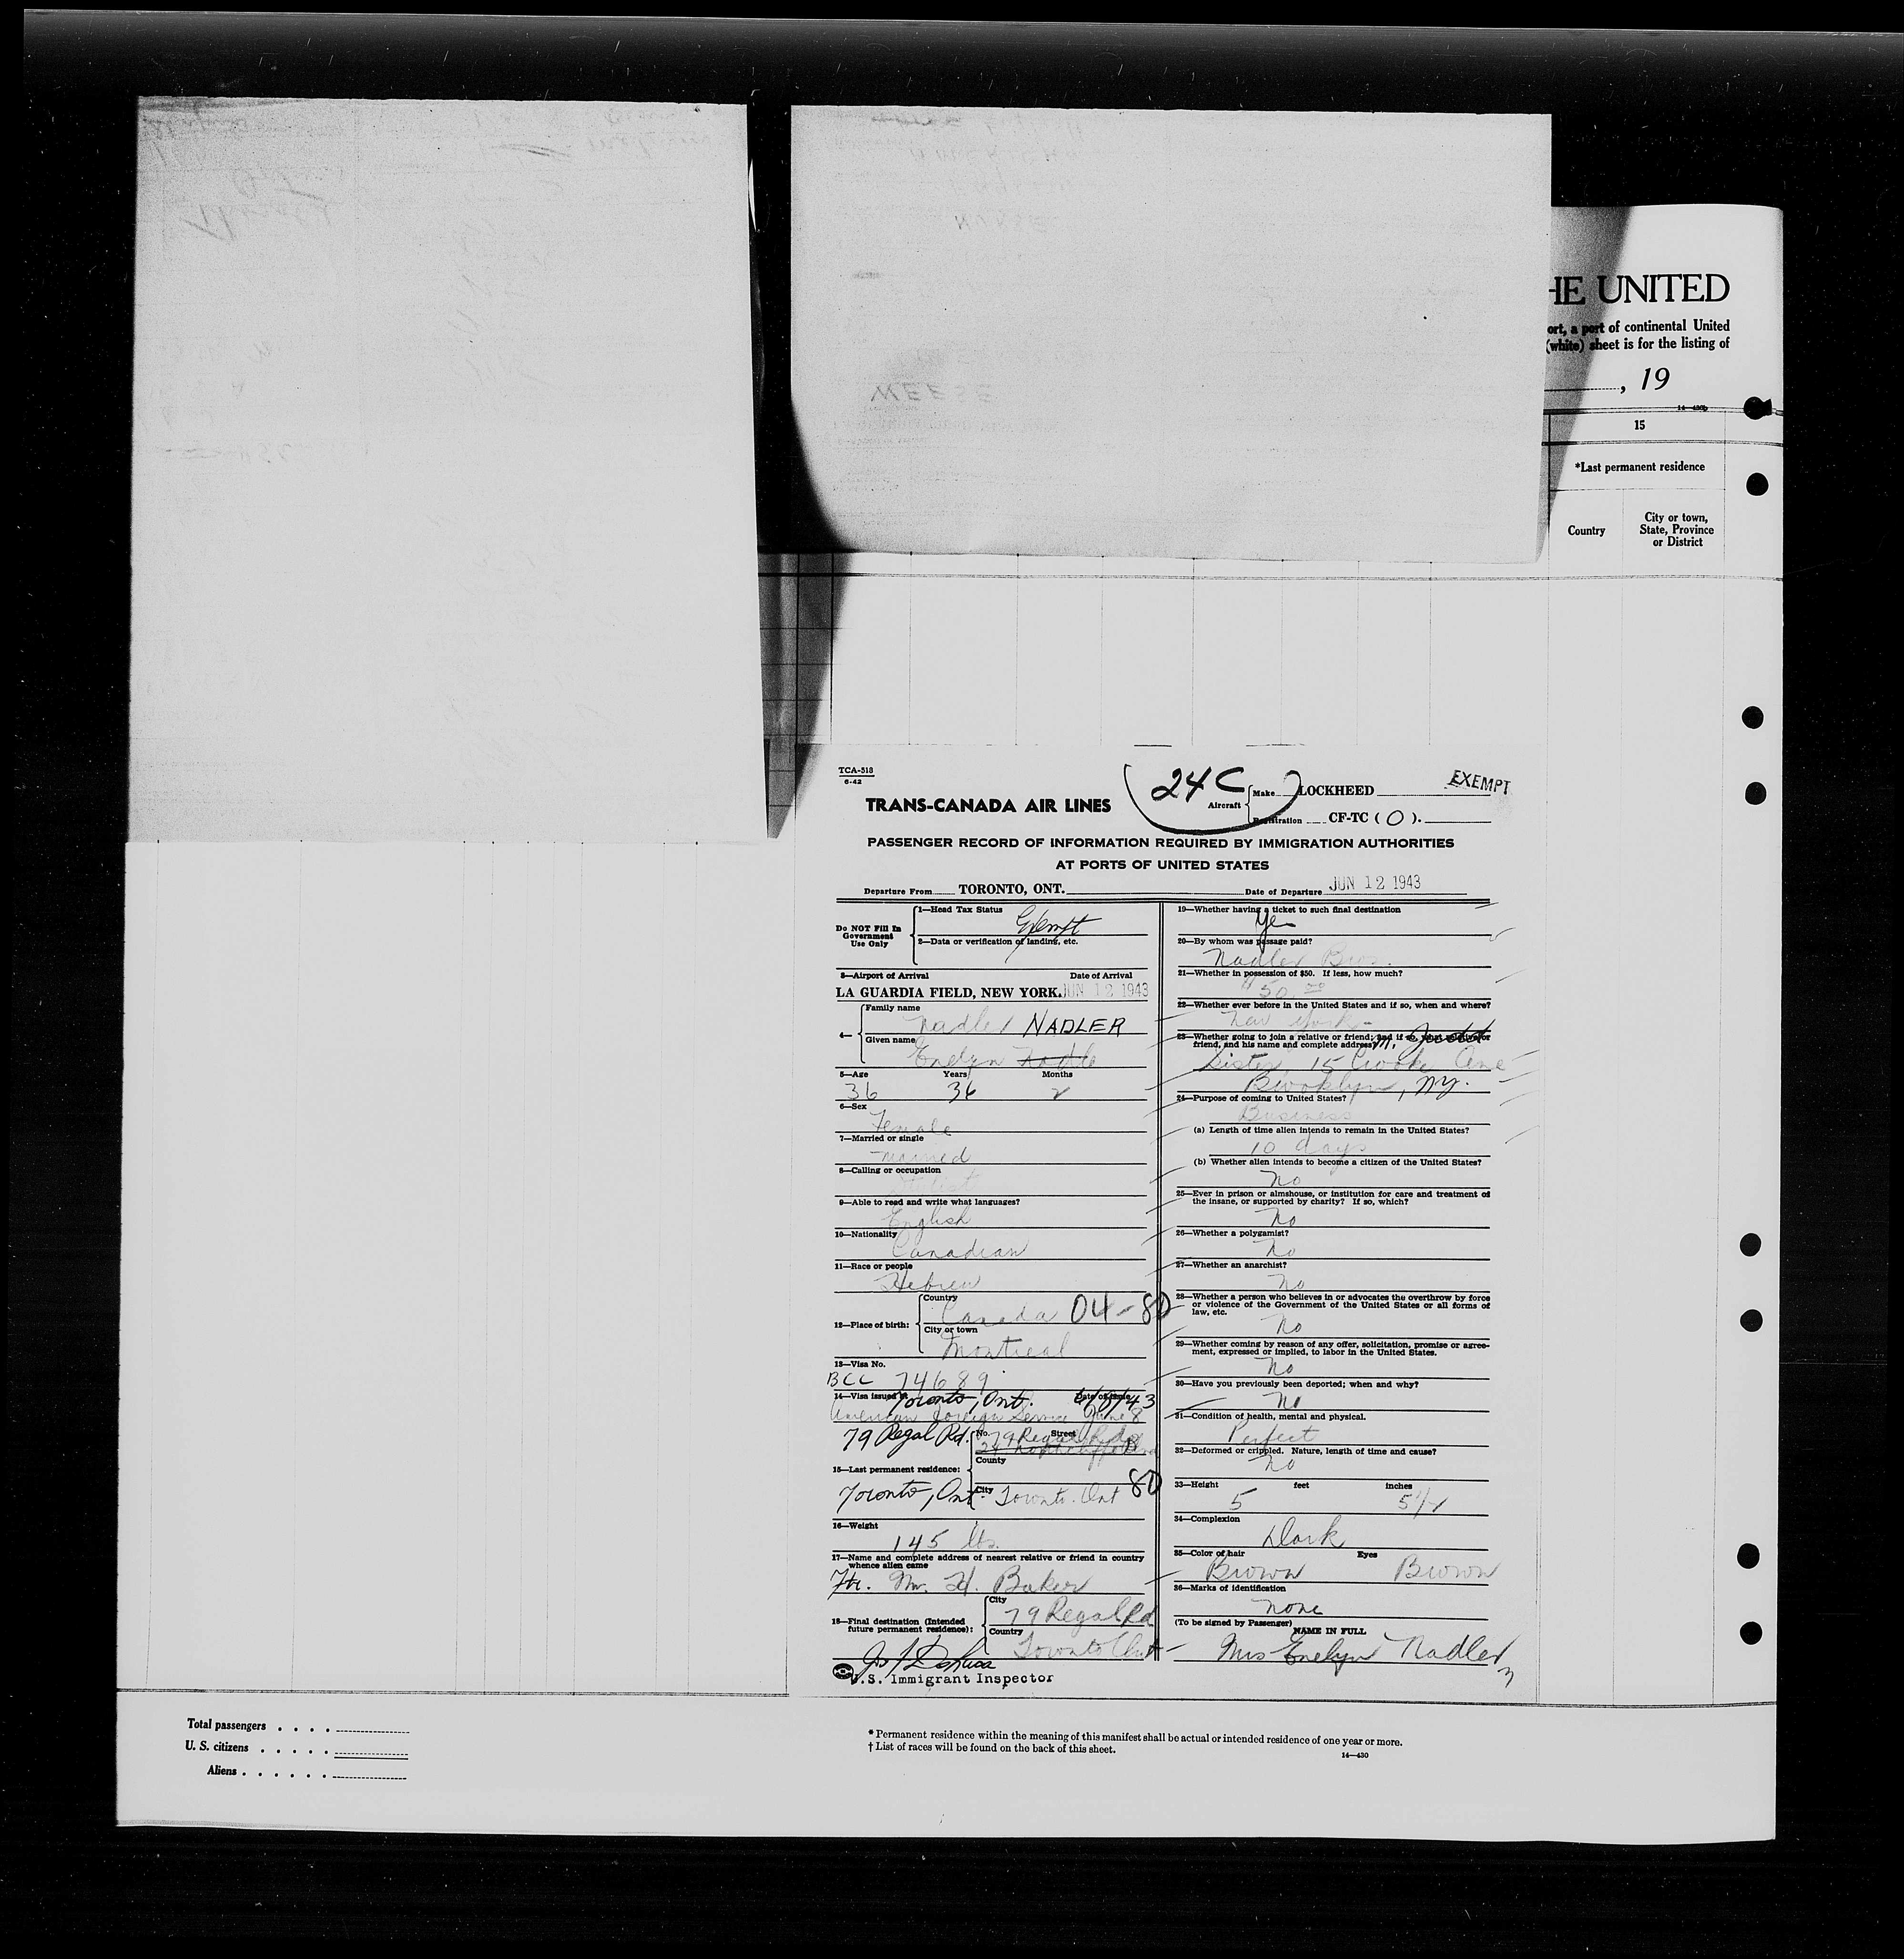 HE UNITED
ort, a port of continental United
(white) sheet is for the listing of
, 19
14—430b
15
*Last permanent residence
Country
City or town,
State, Province
or District
TCA-518
6-42
24C
EXEMPT
TRANS-CANADA AIR LINES
Aircraft
Make LOCKHEED
Registration CF-TC ( O ).
PASSENGER RECORD OF INFORMATION REQUIRED BY IMMIGRATION AUTHORITIES
AT PORTS OF UNITED STATES
Departure From TORONTO, ONT.
Date of Departure JUN 12 1943
Do NOT Fill In
Government
Use Only
1—Head Tax Status
Exempt
2—Data or verification of landing, etc.
3—Airport of Arrival Date of Arrival
LA GUARDIA FIELD, NEW YORK. JUN 12 1943
4—
Family name
Nadler NADLER
Given name
Evelyn
5—Age Years Months
36 36 2
6—Sex
Female
7—Married or single
Married
8—Calling or occupation
9—Able to read and write what languages?
English
10—Nationality
Canadian
11—Race or people
Hebrew
12—Place of birth:
Country
Canada 04-80
City or town
Montreal
13—Visa No.
BCC 74689
14—Visa issued at Toronto, Ont. 6/8/43
American Foreign Service June 8
79 Regal Rd. No. 79 Regal Rd Street
County
15—Last permanent residence:
80
Toronto, Ont. City Toronto. Ont
16—Weight
145 lbs.
17—Name and complete address of nearest relative or friend in country
whence alien came
Mr. H. Baker
18—Final destination (Intended
future permanent residence):
City
79 Regal Rd
Country
Toronto Ont
U.S. Immigrant Inspector
19—Whether having a ticket to such final destination
Yes
20—By whom was passage paid?
Nadler Bros.
21—Whether in possession of $50. If less, how much?
50.00
22—Whether ever before in the United States and if so, when and where?
New York -
23—Whether going to join a relative or friend; and if so, what relative or
friend, and his name and complete address?
Sister, 15 Crooke Ave
Brooklyn, N.Y.
24—Purpose of coming to United States?
Business
(a) Length of time alien intends to remain in the United States?
10 days
(b) Whether alien intends to become a citizen of the United States?
No
25—Ever in prison or almshouse, or institution for care and treatment of
the insane, or supported by charity? If so, which?
No
26—Whether a polygamist?
No
27—Whether an anarchist?
No
28—Whether a person who believes in or advocates the overthrow by force
or violence of the Government of the United States or all forms of
law, etc.
No
29—Whether coming by reason of any offer, solicitation, promise or agree-
ment, expressed or implied, to labor in the United States.
No
30—Have you previously been deported; when and why?
No
31—Condition of health, mental and physical.
Perfect
32—Deformed or crippled. Nature, length of time and cause?
No
33—Height feet inches
5
34—Complexion
Dark
35—Color of hair Eyes
Brown Brown
36—Marks of identification
None
(To be signed by Passenger)
NAME IN FULL
Mrs Evelyn Nadler
Total passengers
U. S. citizens
Aliens
* Permanent residence within the meaning of this manifest shall be actual or intended residence of one year or more.
† List of races will be found on the back of this sheet.
14—430